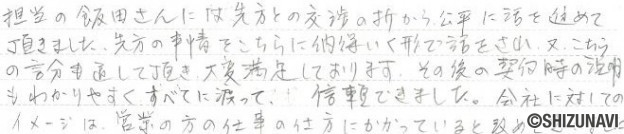 担当の飯田さんには先方との交渉の折から公平に話を進めて
頂きました。先方の事情をこちらに納得いく形で話をされ、又、こちら
の言分も通して頂き、大変満足しております。その後の契約時の説明
もわかりやすく、すべてに渡って、信頼できました。会社に対しての
イメージは、営業の方の仕事の仕方にかかっていると改め
©SHIZUNAVI